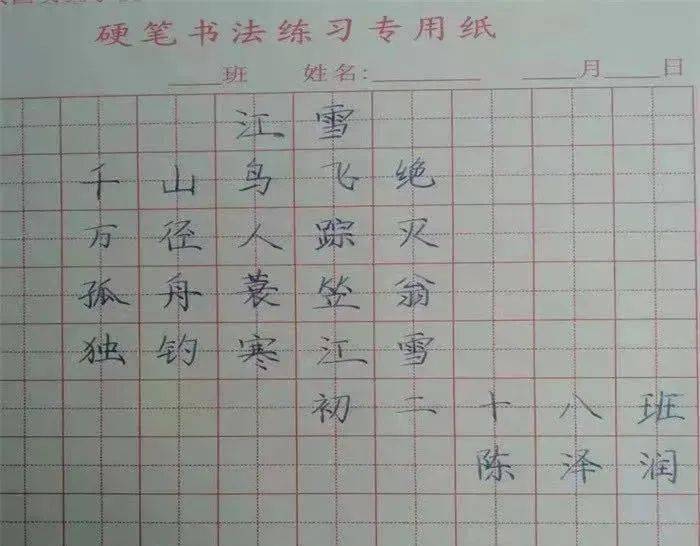 硬笔书法练习专用纸
____班 姓名:________ ____月____日
江雪
千山鸟飞绝
万径人踪灭
孤舟蓑笠翁
独钓寒江雪
初二十八班
陈泽润